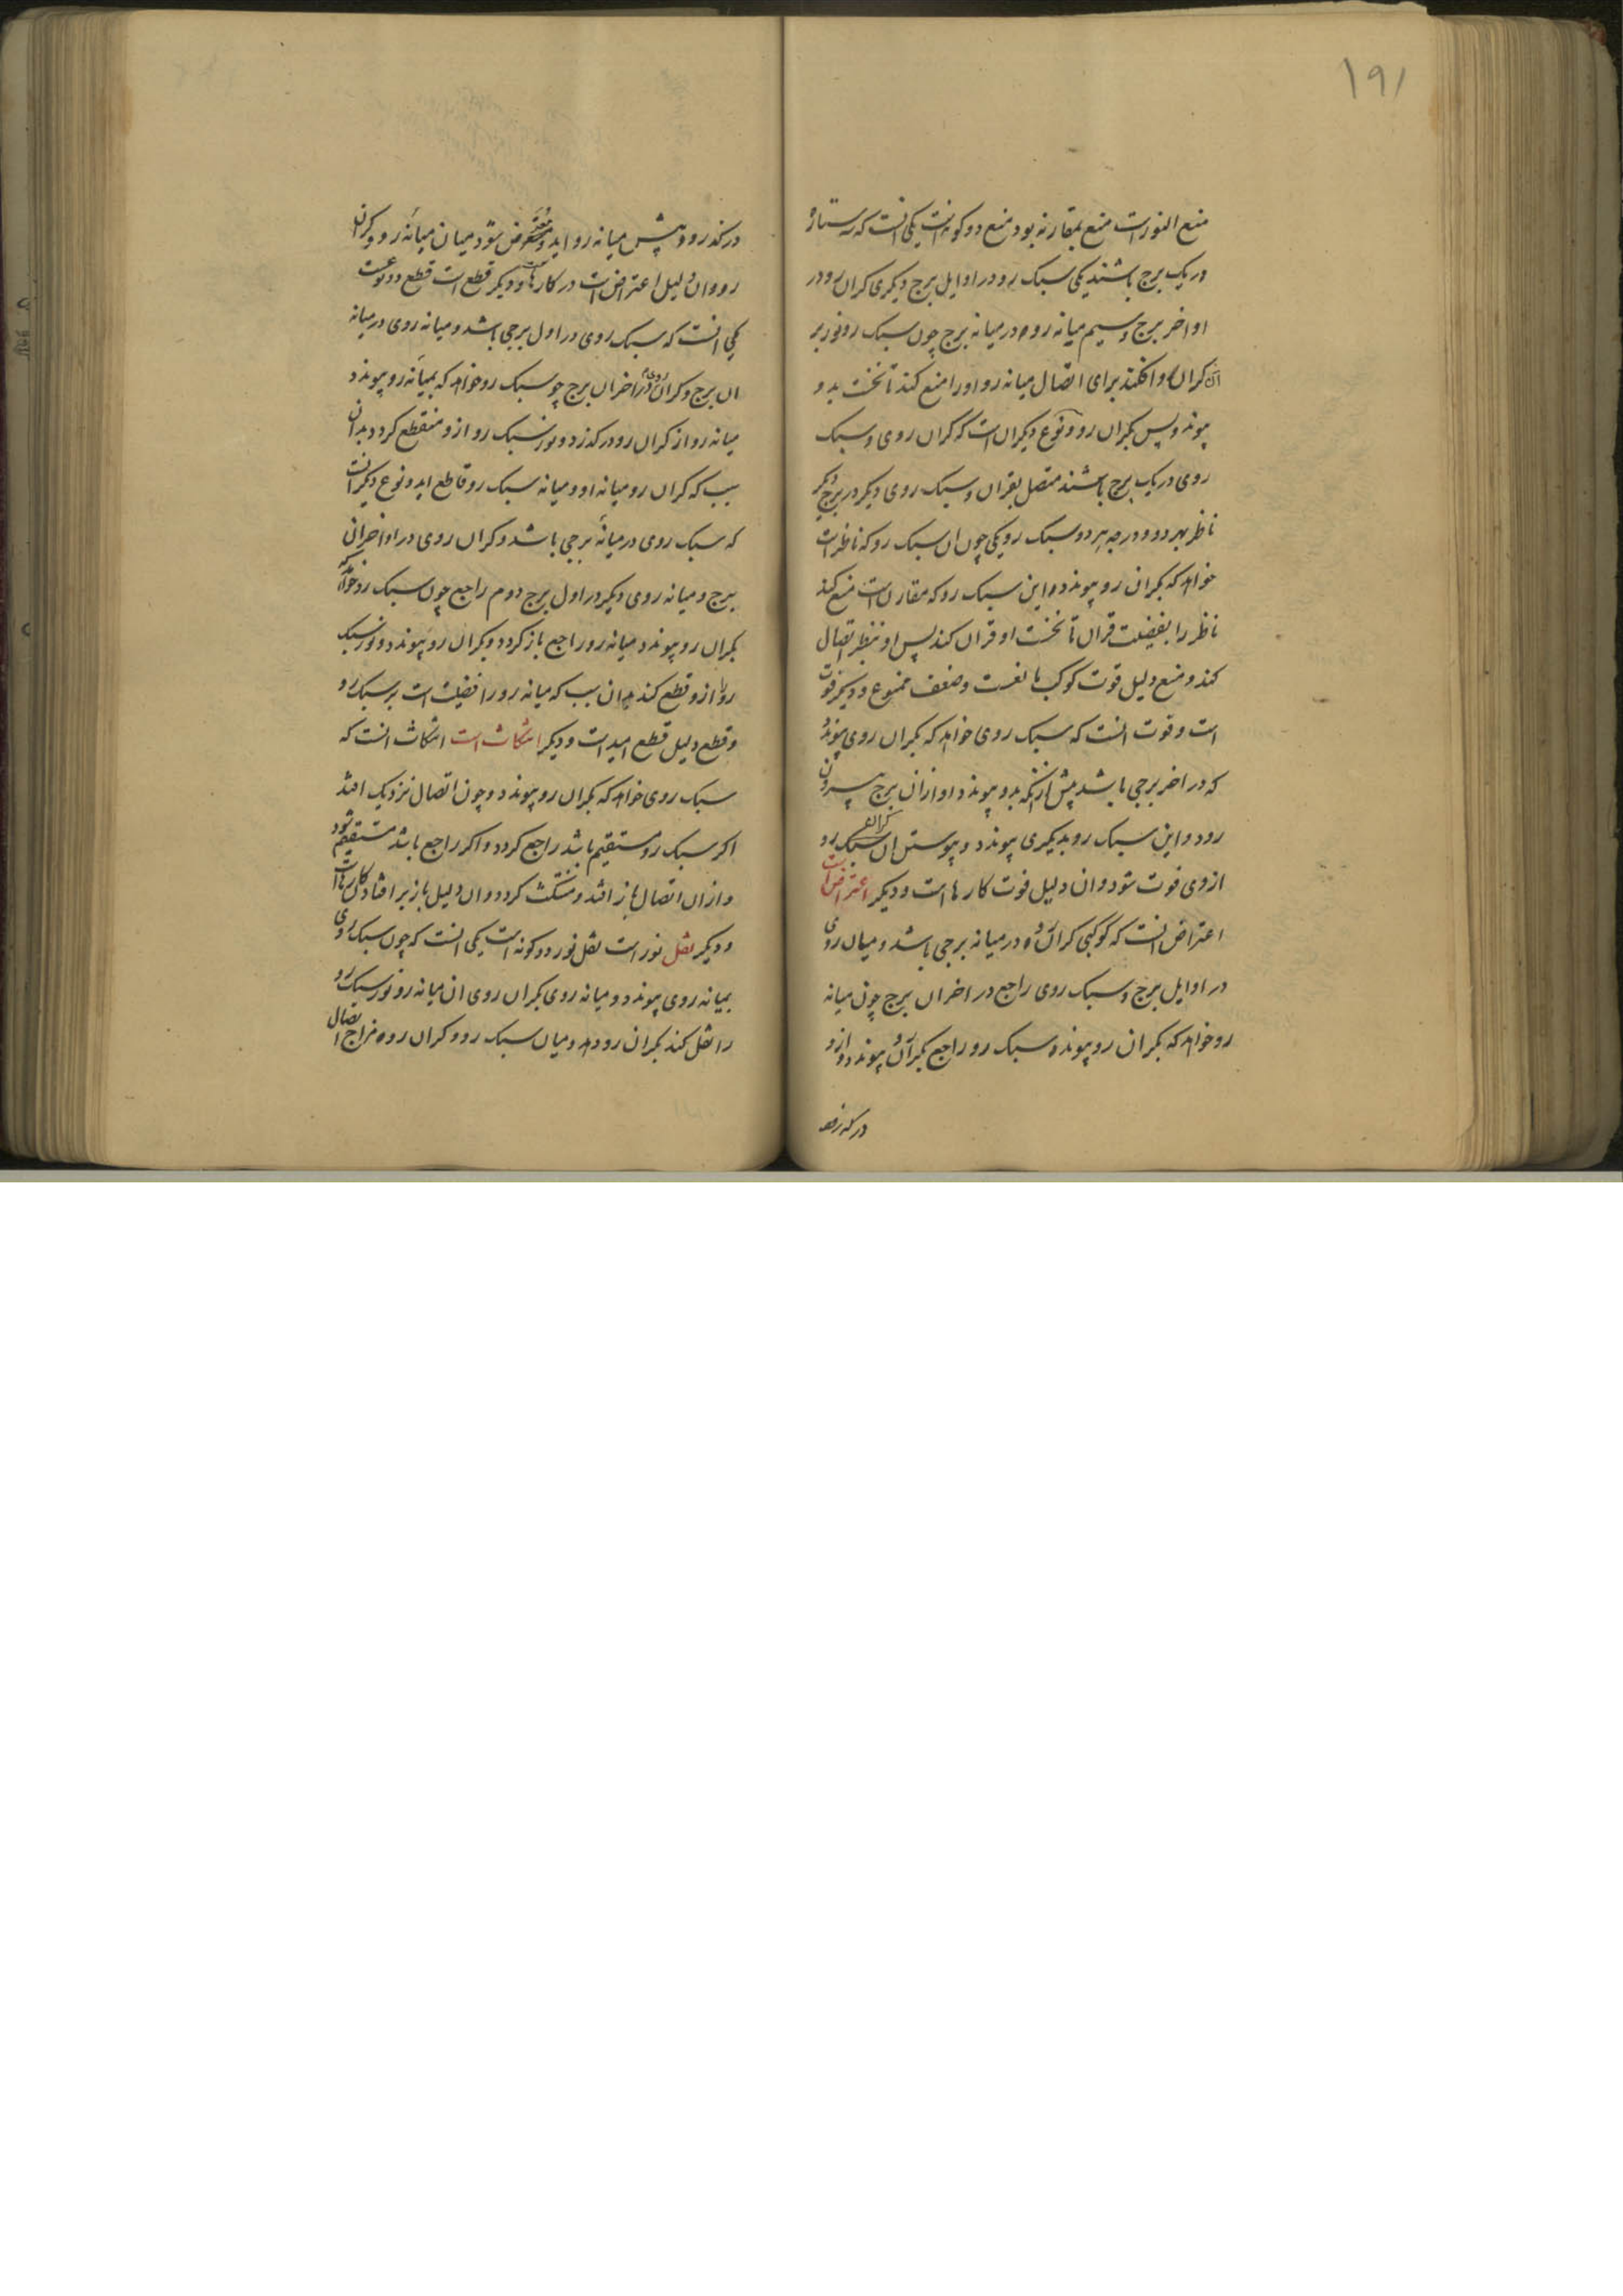 ۱۹۱
منع النور است منع بمقارنه بود منع دو کونه است یکی انست که سه ستاره
در یک برج باشند یکی سبک رو در اوایل برج و دیکری کران رو در
اواخر برج و سیم میانه رو در میانه برج چون سبک رو نور بر
آن کران رو افکند برای اتصال میانه رو او را منع کند تا نخست بدو
پیوندد پس بکران رو و نوع دیکر ان است که کران روی و سبک
روی در یک برج باشند متصل بقران و سبک روی دیکر در برج دیکر
ناظر بهر دو و درجه هر دو سبک رو یکی چون ان سبک رو که ناظر است
خواهد که بکران رو پیوندد این سبک رو که مقارن است منع کند
ناظر را بفضیلت قران تا نخست او قران کند پس او بنظر اتصال
کند و منع دلیل قوت کوکب مانعست و ضعف ممنوع و دیکر فوت
است و فوت انست که سبک روی خواهد که بکران روی پیوندد
که در اخر برجی باشد پیش از انکه بدو پیوندد او ازان برج بیرون
رود و این سبک رو بدیکری پیوندد و پیوستن ان سبک رو کران
ازوی فوت شود و ان دلیل فوت کارها است و دیکر اعتراض است
اعتراض انست که کوکبی کران رو در میانه برجی باشد و میان روی
در اوایل برج و سبک روی راجع در اخر ان برج چون میانه
رو خواهد که بکران رو پیوندد سبک رو راجع بکران رو پیوندد و ازو
درکذرد و پیش میانه رو اید و معترض شود میان میانه رو و کران
رو و ان دلیل اعتراض است در کارها و دیکر قطع است قطع دو نوعست
یکی انست که سبک روی در اول برجی باشد و میانه روی در میانه
ان برج و کران روی در اخر ان برج چو سبک رو خواهد که بمیانه رو پیوندد
میانه رو از کران رو درکذرد و نور سبک رو ازو منقطع کردد بدان
سبب که کران رو میانه او و میانه سبک رو قاطع اید و نوع دیکر انست
که سبک روی در میانه برجی باشد و کران روی در اواخر ان
برج و میانه روی دیکر در اول برج دوم راجع چون سبک رو خواهد که
بکران رو پیوندد میانه رو راجع باز کردد و بکران رو پیوندد و نور سبک
رو را ازو قطع کند بدان سبب که میانه رو را فضیلت است بر سبک رو
و قطع دلیل قطع امید است و دیکر انتکاث است انتکاث انست که
سبک روی خواهد که بکران رو پیوندد و چون اتصال نزدیک افتد
اکر سبک رو مستقیم باشد راجع کردد و اکر راجع باشد مستقیم شود
و ازان اتصال باز افتد و منتکث کردد و ان دلیل باز بر افتادن کارها است
و دیکر نقل نور است نقل نور دو کونه است یکی انست که چون سبک روی
بمیانه روی پیوندد و میانه روی بکران روی ان میانه رو نور سبک رو
را نقل کند بکران رو دهد و میان سبک رو و کران رو مزاج اتصال